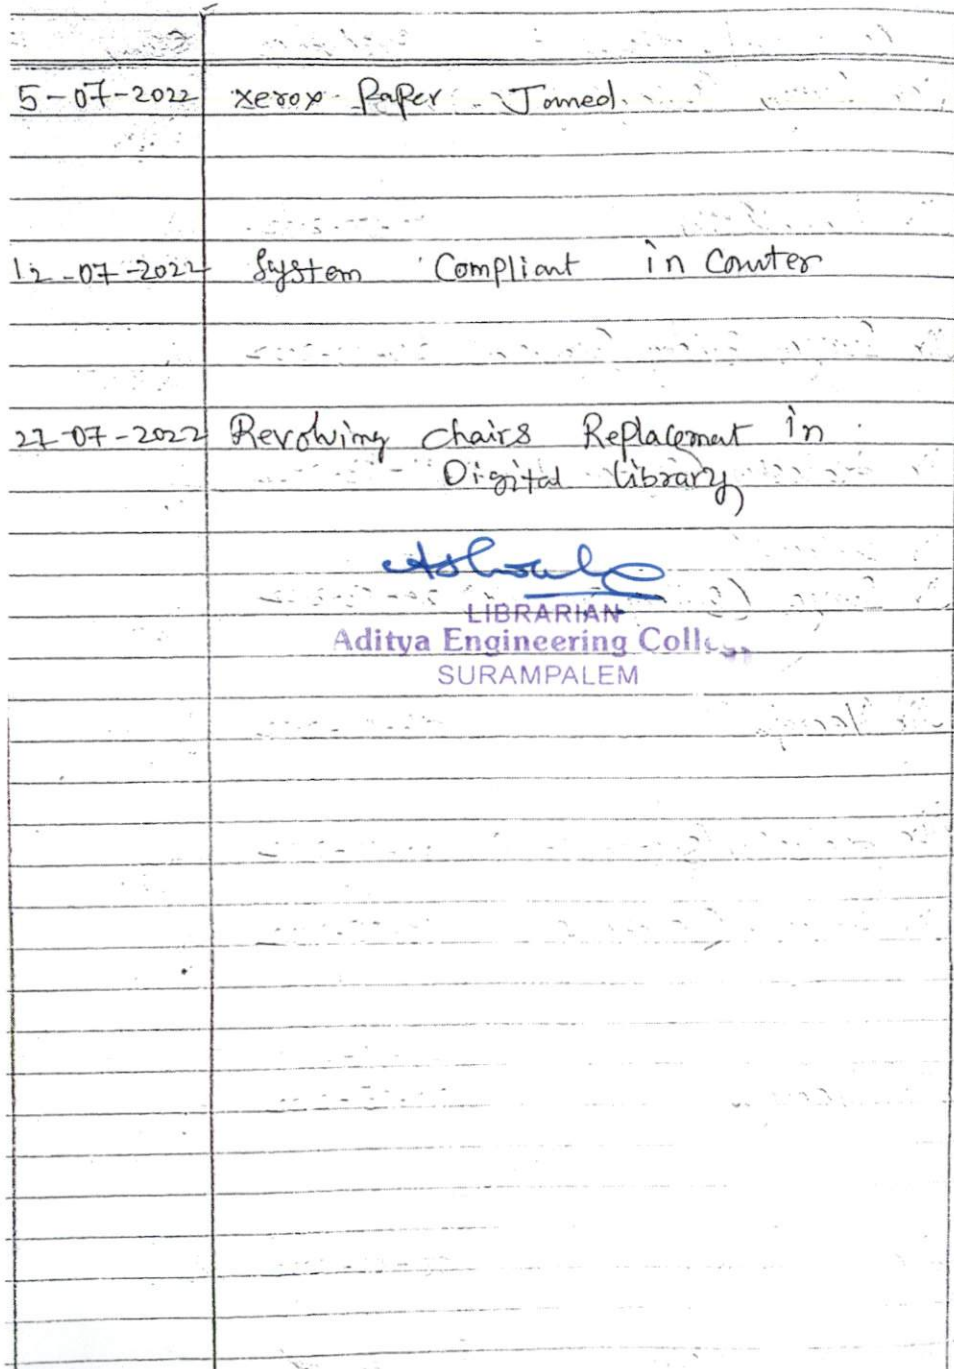 5-07-2022 xerox Paper Jomed.
12-07-2022 System Compliant in Counter
27-07-2022 Revolving chairs Replacement in
Digital library
LIBRARIAN
Aditya Engineering
SURAMPALEM